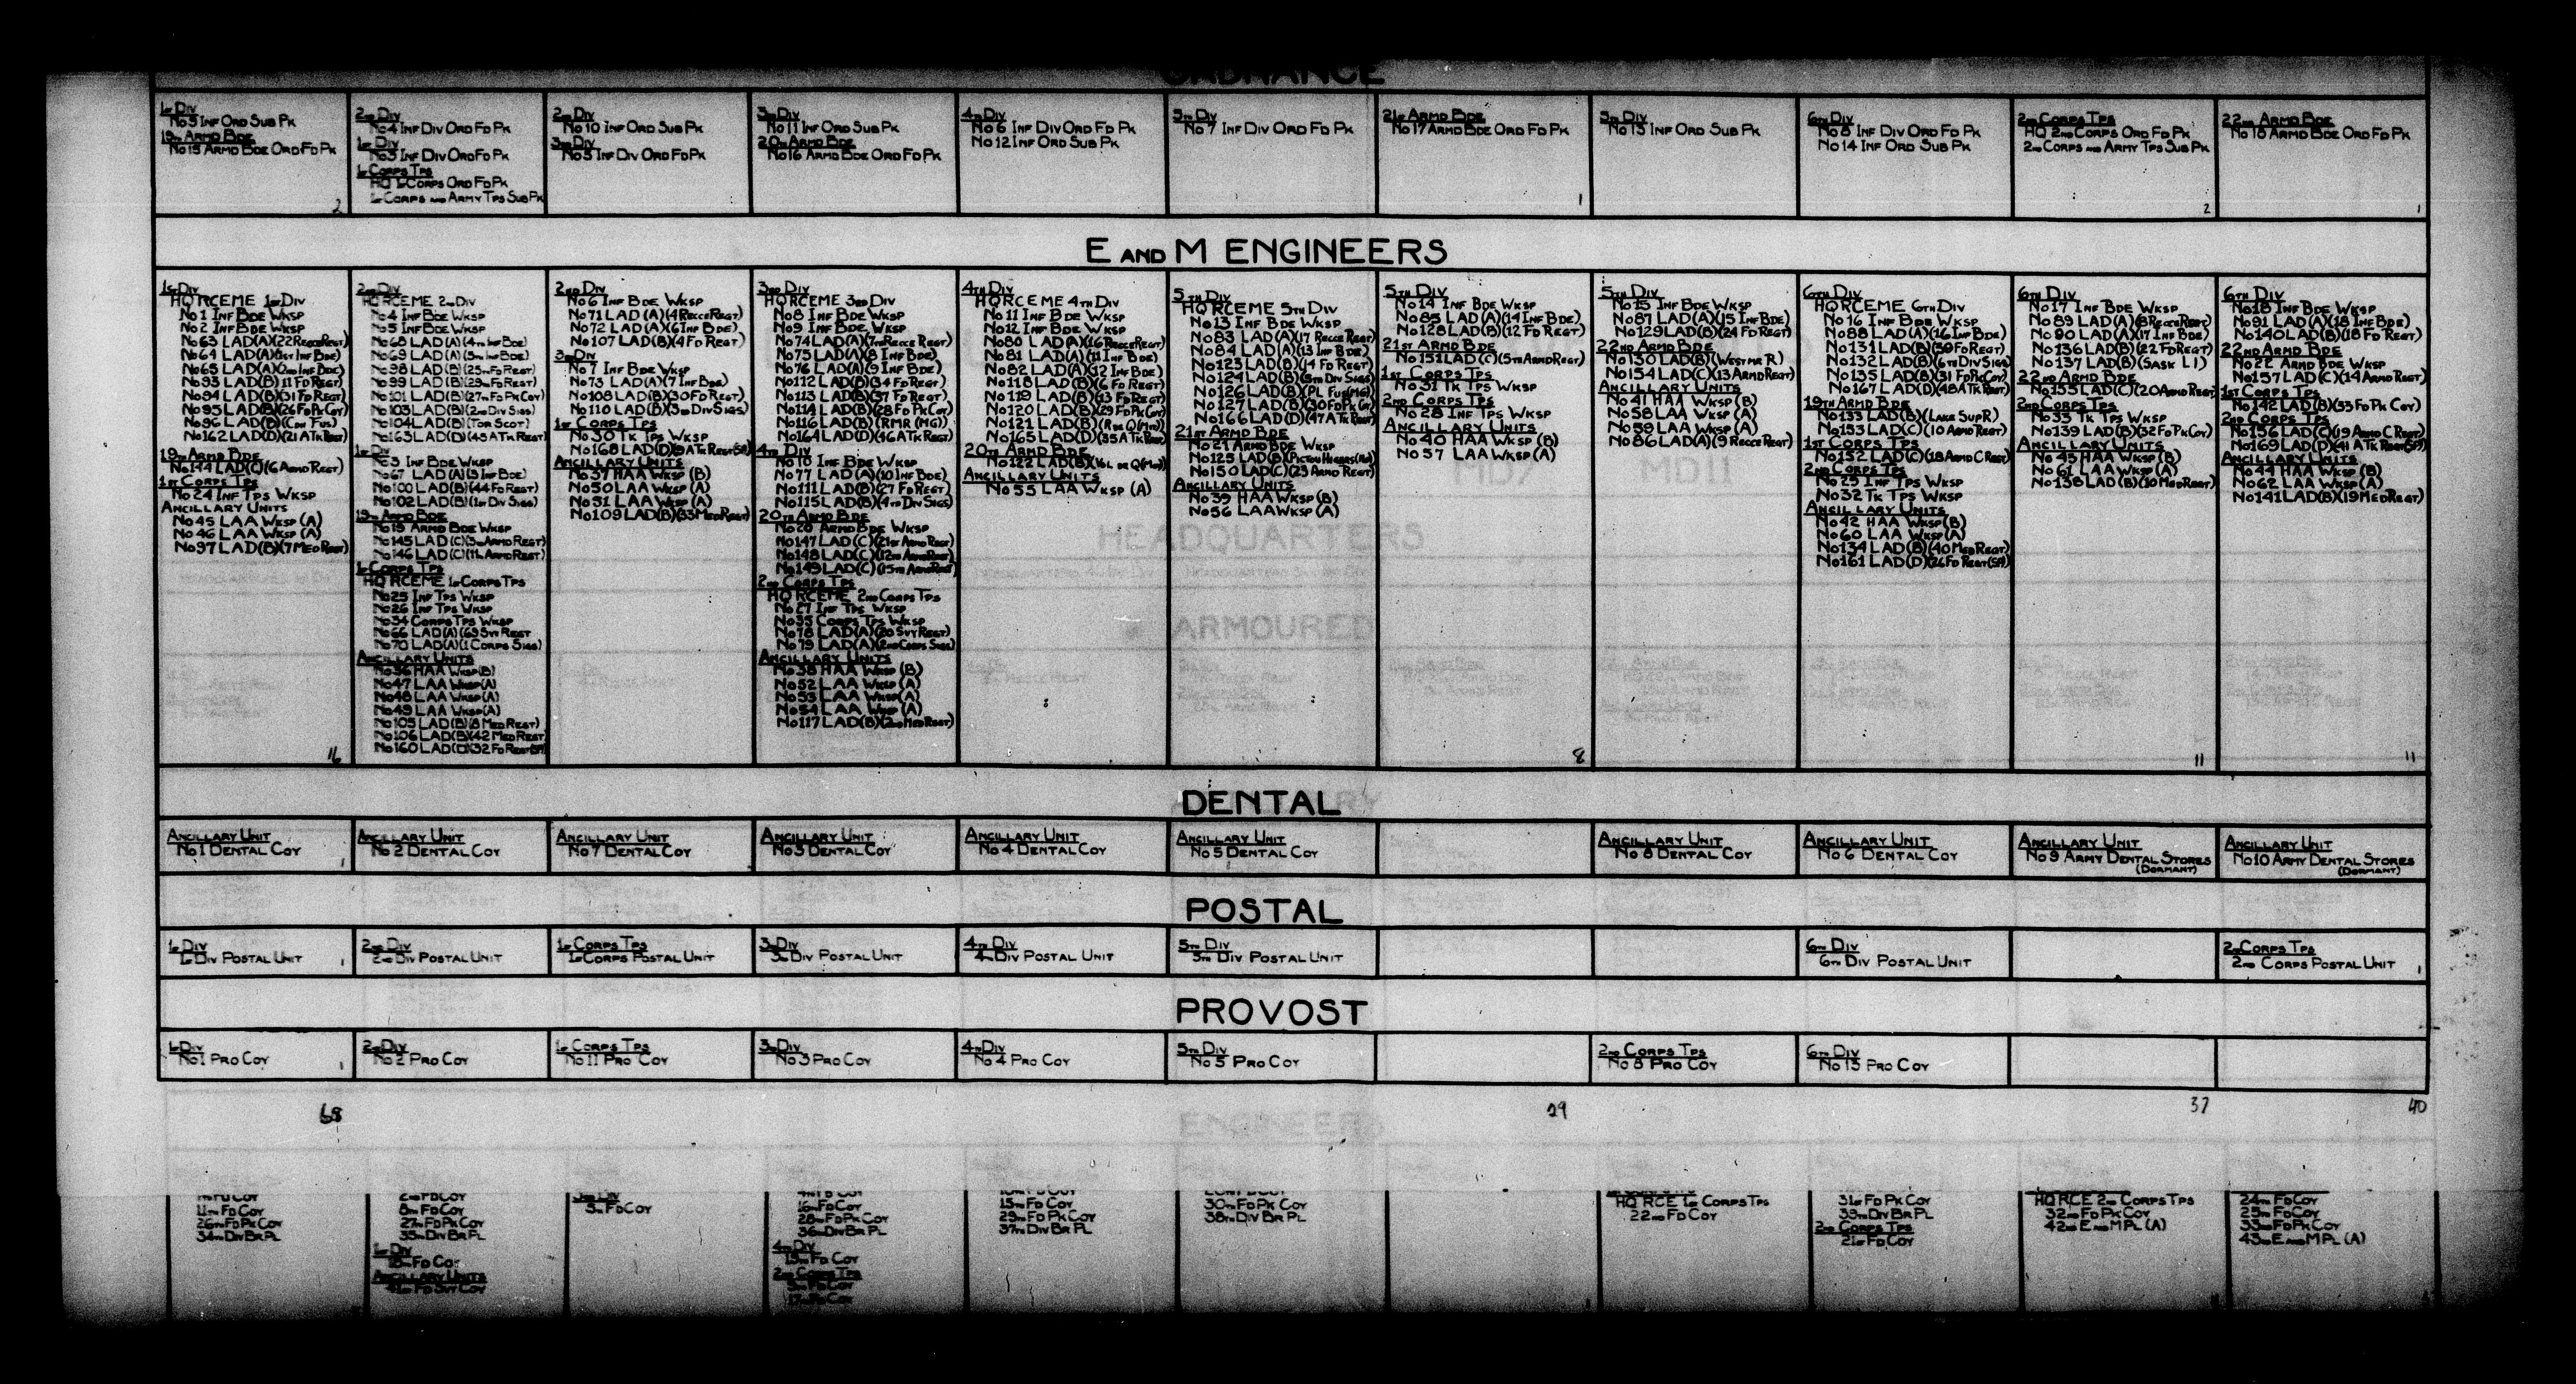 ORDNANCE
1st Div
No 3 Inf Ord Sub Pk
19th Armd Bde
No 15 Armd Bde Ord Fd Pk
2
2nd Div
No 4 Inf Div Ord Fd Pk
1st Div
No 3 Inf Div Ord Fd Pk
1st Corps Tps
HQ 1st Corps Ord Fd Pk
1st Corps and Army Tps Sub Pk
2nd Div
No 10 Inf Ord Sub Pk
3rd Div
No 5 Inf Div Ord Fd Pk
3rd Div
No 11 Inf Ord Sub Pk
20th Armd Bde
No 16 Armd Bde Ord Fd Pk
4th Div
No 6 Inf Div Ord Fd Pk
No 12 Inf Ord Sub Pk
5th Div
No 7 Inf Div Ord Fd Pk
21st Armd Bde
No 17 Armd Bde Ord Fd Pk
1
5th Div
No 13 Inf Ord Sub Pk
6th Div
No 8 Inf Div Ord Fd Pk
No 14 Inf Ord Sub Pk
2nd Corps Tps
HQ 2nd Corps Ord Fd Pk
2nd Corps and Army Tps Sub Pk
2
22nd Armd Bde
No 18 Armd Bde Ord Fd Pk
1
E and M ENGINEERS
1st Div
HQ RCEME 1st Div
No 1 Inf Bde Wksp
No 2 Inf Bde Wksp
No 63 LAD (A) (22 Recce Regt)
No 64 LAD (A) (1st Inf Bde)
No 65 LAD (A) (2nd Inf Bde)
No 93 LAD (B) (11 Fd Regt)
No 94 LAD (B) (31 Fd Regt)
No 95 LAD (B) (26 Fd Pk Coy)
No 96 LAD (B) (Can Fus)
No 162 LAD (D) (21 A Tk Regt)
19th Armd Bde
No 144 LAD (C) (6 Armd Regt)
1st Corps Tps
No 24 Inf Tps Wksp
Ancillary Units
No 45 LAA Wksp (A)
No 46 LAA Wksp (A)
No 97 LAD (B) (7 Med Regt)
16
2nd Div
HQ RCEME 2nd Div
No 4 Inf Bde Wksp
No 5 Inf Bde Wksp
No 68 LAD (A) (4th Inf Bde)
No 69 LAD (A) (5th Inf Bde)
No 98 LAD (B) (25th Fd Regt)
No 99 LAD (B) (29th Fd Regt)
No 101 LAD (B) (27th Fd Pk Coy)
No 103 LAD (B) (2nd Div Sigs)
No 104 LAD (B) (Tor Scot)
No 163 LAD (D) (45 A Tk Regt)
1st Div
No 3 Inf Bde Wksp
No 67 LAD (A) (3 Inf Bde)
No 100 LAD (B) (44 Fd Regt)
No 102 LAD (B) (1st Div Sigs)
19th Armd Bde
No 19 Armd Bde Wksp
No 145 LAD (C) (3rd Armd Regt)
No 146 LAD (C) (11 Armd Regt)
1st Corps Tps
HQ RCEME 1st Corps Tps
No 25 Inf Tps Wksp
No 26 Inf Tps Wksp
No 34 Corps Tps Wksp
No 66 LAD (A) (69 Svy Regt
No 70 LAD (A) (1 Corps Sigs)
Ancillary Units
No 36 HAA Wksp (B)
No 47 LAA Wksp (A)
No 48 LAA Wksp (A)
No 49 LAA Wksp (A)
No 105 LAD (B) (8 Med Regt)
No 106 LAD (B) (42 Med Regt
No 160 LAD (D) (32 Fd Regt (SP)
2nd Div
No 6 Inf Bde Wksp
No 71 LAD (A) (4 Recce Regt)
No 72 LAD (A) (6 Inf Bde)
No 107 LAD (B) (4 Fd Regt)
3rd Div
No 7 Inf Bde Wksp
No 73 LAD (A) (7 Inf Bde)
No 108 LAD (B) (30 Fd Regt)
No 110 LAD (B) (3rd Div Sigs)
1st Corps Tps
No 30 Tk Tps Wksp
No 168 LAD (D) (9 A Tk Regt SP)
Ancillary Units
No 37 HAA Wksp (B)
No 50 LAA Wksp (A)
No 51 LAA Wksp (A)
No 109 LAD (B) (33 Med Regt)
3rd Div
HQ RCEME 3rd Div
No 8 Inf Bde Wksp
No 9 Inf Bde Wksp
No 74 LAD (A) (7th Recce Regt)
No 75 LAD (A) (8 Inf Bde)
No 76 LAD (A) (9 Inf Bde)
No 112 LAD (B) (34 Fd Regt)
No 113 LAD (B) (37 Fd Regt)
No 114 LAD (B) (28 Fd Pk Coy)
No 116 LAD (B) (RMR (MG))
No 164 LAD (D) (46 A Tk Regt)
4th Div
No 10 Inf Bde Wksp
No 77 LAD (A) (10 Inf Bde)
No 111 LAD (B) (27 Fd Regt)
No 115 LAD (B) (4th Div Sigs)
20th Armd Bde
No 20 Armd Bde Wksp
No 147 LAD (C) (21st Armd Regt)
No 148 LAD (C) (12th Armd Regt)
No 149 LAD (C) (15th Armd Regt)
2nd Corps Tps
HQ RCEME 2nd Corps Tps
No 27 Inf Tps Wksp
No 35 Corps Tps Wksp
No 78 LAD (A) (20 Svy Regt)
No 79 LAD (A) (2nd Corps Sigs)
Ancillary Units
No 38 HAA Wksp (B)
No 52 LAA Wksp (A)
No 53 LAA Wksp (A)
No 54 LAA Wksp (A)
No 117 LAD (B) (2nd Med Regt)
4th Div
HQ RCEME 4th Div
No 11 Inf Bde Wksp
No 12 Inf Bde Wksp
No 80 LAD (A) (16 Recce Regt)
No 81 LAD (A) (11 Inf Bde)
No 82 LAD (A) (12 Inf Bde)
No 118 LAD (B) (6 Fd Regt)
No 119 LAD (B) (13 Fd Regt)
No 120 LAD (B) (29 Fd Pk Coy)
No 121 LAD (B) (R de Q (MG))
No 165 LAD (D) (35 A Tk Regt)
20th Armd Bde
No 122 LAD (B)
Ancillary Units
No 55 LAA Wksp (A)
5th Div
HQ RCEME 5th Div
No 13 Inf Bde Wksp
No 83 LAD (A) (17 Recce Regt)
No 84 LAD (A) (13 Inf Bde)
No 123 LAD (B) (14 Fd Regt)
No 124 LAD (B) (5th Div Sigs)
No 126 LAD (B) (PL Fus (MG)
No 127 LAD (B) (30 Fd Pk Coy)
No 166 LAD (D) (47 A Tk Regt)
21st Armd Bde
No 21 Armd Bde Wksp
No 125 LAD (B) (Pictou Highrs (M))
No 150 LAD (C) (23 Armd Regt)
Ancillary Units
No 39 HAA Wksp (B)
No 56 LAA Wksp (A)
5th Div
No 14 Inf Bde Wksp
No 85 LAD (A) (14 Inf Bde)
No 128 LAD (B) (12 Fd Regt)
21st Armd Bde
No 151 LAD (C) (5th Armd Regt)
1st Corps Tps
No 31 Tk Tps Wksp
2nd Corps Tps
No 28 Inf Tps Wksp
Ancillary Units
No 40 HAA Wksp (B)
No 57 LAA Wksp (A)
8
5th Div
No 15 Inf Bde Wksp
No 87 LAD (A) (15 Inf Bde)
No 129 LAD (B) (24 Fd Regt)
22nd Armd Bde
No 130 LAD (B) (Westmr R)
No 154 LAD (C) (13 Armd Regt)
Ancillary Units
No 41 HAA Wksp (B)
No 58 LAA Wksp (A)
No 59 LAA Wksp (A)
No 86 LAD (A) (9 Recce Regt)
6th Div
HQ RCEME 6th Div
No 16 Inf Bde Wksp
No 88 LAD (A) (16 Inf Bde)
No 131 LAD (B) (39 Fd Regt)
No 132 LAD (B) (6th Div Sigs
No 135 LAD (B) (31 Fd Pk Coy)
No 167 LAD (D) (48 A Tk Regt)
19th Armd Bde
No 133 LAD (B) (Lake Sup R)
No 153 LAD (C) (10 Armd Regt)
1st Corps Tps
No 152 LAD (C) (18 Armd C Regt)
2nd Corps Tps
No 29 Inf Tps Wksp
No 32 Tk Tps Wksp
Ancillary Units
No 42 HAA Wksp (B)
No 60 LAA Wksp (A)
No 134 LAD (B) (40 Med Regt)
No 161 LAD (D) (26 Fd Regt (SP)
6th Div
No 17 Inf Bde Wksp
No 89 LAD (A) (8 Recce Regt)
No 90 LAD (A) (17 Inf Bde)
No 136 LAD (B) (22 Fd Regt)
No 137 LAD (B) (Sask L I)
22nd Armd Bde
No 155 LAD (C) (20 Armd Regt
2nd Corps Tps
No 33 Tk Tps Wksp
No 139 LAD (B) (32 Fd Pk Coy)
Ancillary Units
No 43 HAA Wksp (B)
No 61 LAA Wksp (A)
No 138 LAD (B) (10 Med Regt)
11
6th Div
No 18 Inf Bde Wksp
No 91 LAD (A) (18 Inf Bde)
No 140 LAD (B) (18 Fd Regt)
22nd Armd Bde
No 22 Armd Bde Wksp
No 157 LAD (C) (14 Armd Regt
1st Corps Tps
No 142 LAD (B) (33 Fd Pk Coy)
2nd Corps Tps
No 156 LAD (C) (19 Armd C Regt)
Ancillary Units
No 44 HAA Wksp (B)
No 62 LAA Wksp (A)
No 141 LAD (B) (19 Med Regt)
11
MD 11
HEADQUARTERS
ARMOURED
DENTAL
Ancillary Unit
No 1 Dental Coy
1
Ancillary Unit
No 2 Dental Coy
Ancillary Unit
No 7 Dental Coy
Ancillary Unit
No 3 Dental Coy
Ancillary Unit
No 4 Dental Coy
Ancillary Unit
No 5 Dental Coy
Ancillary Unit
No 8 Dental Coy
Ancillary Unit
No 6 Dental Coy
Ancillary Unit
No 9 Army Dental Stores
(Dormant)
Ancillary Unit
No 10 Army Dental Stores
(Dormant)
POSTAL
1st Div
1st Div Postal Unit
1
2nd Div
2nd Div Postal Unit
1st Corps Tps
1st Corps Postal Unit
3rd Div
3rd Div Postal Unit
4th Div
4th Div Postal Unit
5th Div
5th Div Postal Unit
6th Div
6th Div Postal Unit
2nd Corps Tps
2nd Corps Postal Unit
1
PROVOST
1st Div
No 1 Pro Coy
1
2nd Div
No 2 Pro Coy
1st Corps Tps
No 11 Pro Coy
3rd Div
No 3 Pro Coy
4th Div
No 4 Pro Coy
5th Div
No 5 Pro Coy
2nd Corps Tps
No 8 Pro Coy
6th Div
No 13 Pro Coy
68
29
37
40
ENGINEERS
11th Fd Coy
26th Fd Pk Coy
34th Div Br Pl
2nd Fd Coy
8th Fd Coy
27th Fd Pk Coy
35th Div Br Pl
1st Div
18th Fd Coy
Ancillary Units
Fd Svy Coy
3rd Div
5th Fd Coy
16th Fd Coy
28th Fd Pk Coy
36th Div Br Pl
4th Div
19th Fd Coy
2nd Corps Tps
15th Fd Coy
29th Fd Pk Coy
37th Div Br Pl
30th Fd Pk Coy
38th Div Br Pl
HQ RCE 1st Corps Tps
22nd Fd Coy
31st Fd Pk Coy
39th Div Br Pl
2nd Corps Tps
21st Fd Coy
HQ RCE 2nd Corps Tps
32nd Fd Pk Coy
42nd E and M Pl (A)
24th Fd Coy
25th Fd Coy
33rd Fd Pk Coy
43rd E and M Pl (A)